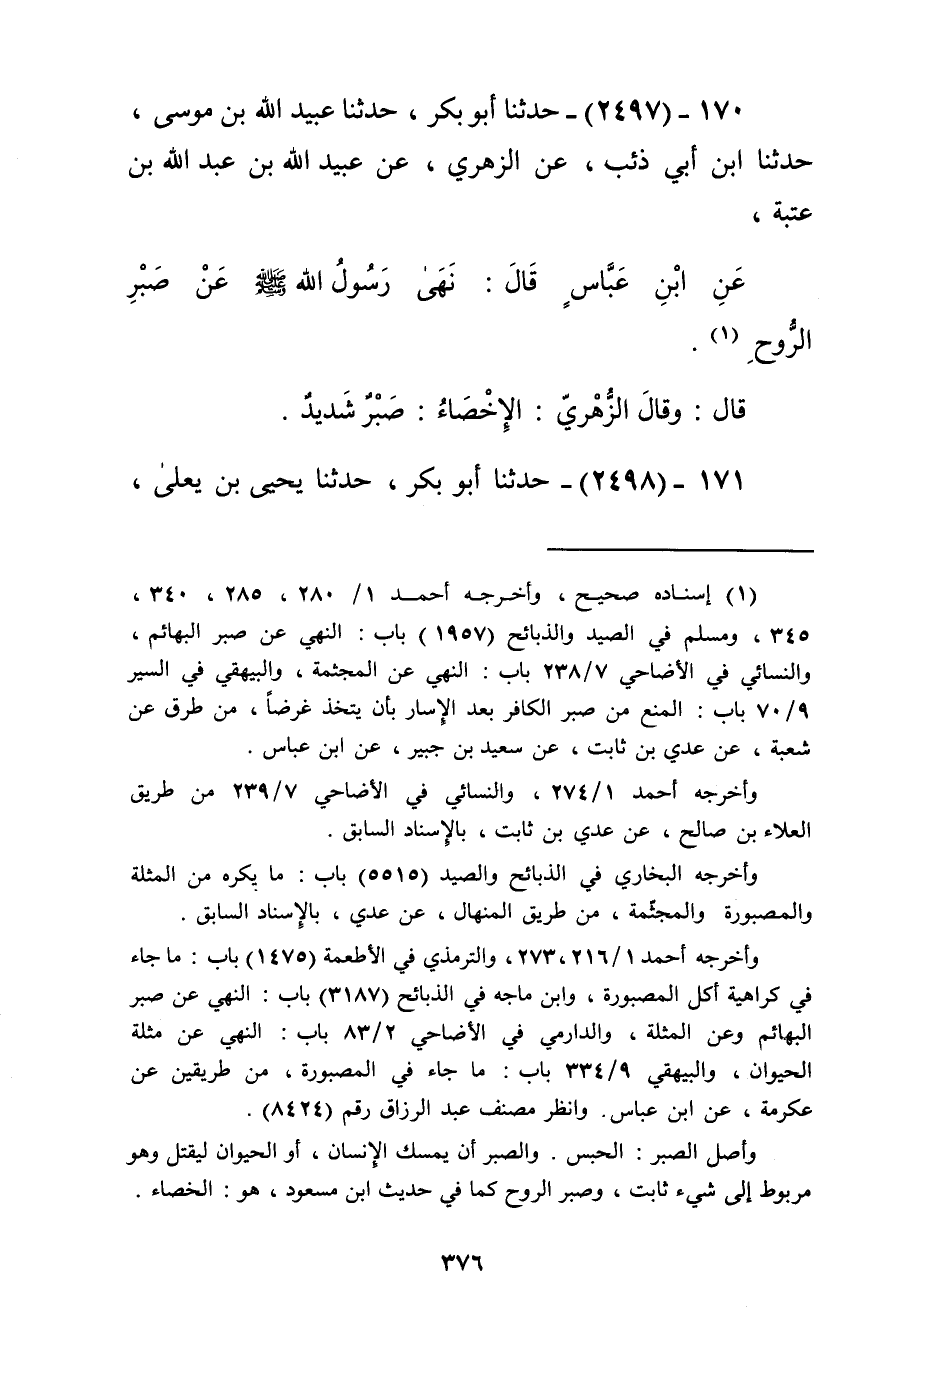 ١٧٠ - (٢٤٩٧) - حدثنا أبو بكر ، حدثنا عبيد الله بن موسى ،
حدثنا ابن أبي ذئب ، عن الزهري ، عن عبيد الله بن عبد الله بن
عتبة ،
عَنِ ابْنِ عَبَّاسٍ قَالَ : نَهَىٰ رَسُولُ الله ﷺ عَنْ صَبْرِ
الرُّوحِ (١) .
قال : وقالَ الزُّهْريّ : الإِخْصَاءُ : صَبْرٌ شَديدٌ .
١٧١ - (٢٤٩٨) - حدثنا أبو بكر ، حدثنا يحيى بن يعلىٰ ،
(١) إسناده صحيح ، وأخرجه أحمد ١/ ٢٨٠ ، ٢٨٥ ، ٣٤٠ ،
٣٤٥ ، ومسلم في الصيد والذبائح (١٩٥٧) باب : النهي عن صبر البهائم ،
والنسائي في الأضاحي ٢٣٨/٧ باب : النهي عن المجثمة ، والبيهقي في السير
٧٠/٩ باب : المنع من صبر الكافر بعد الإسار بأن يتخذ غرضاً ، من طرق عن
شعبة ، عن عدي بن ثابت ، عن سعيد بن جبير ، عن ابن عباس .
وأخرجه أحمد ٢٧٤/١ ، والنسائي في الأضاحي ٢٣٩/٧ من طريق
العلاء بن صالح ، عن عدي بن ثابت ، بالإسناد السابق .
وأخرجه البخاري في الذبائح والصيد (٥٥١٥) باب : ما يكره من المثلة
والمصبورة والمجثّمة ، من طريق المنهال ، عن عدي ، بالإسناد السابق .
وأخرجه أحمد ٢١٦/١ ،٢٧٣ ، والترمذي في الأطعمة (١٤٧٥) باب : ما جاء
في كراهية أكل المصبورة ، وابن ماجه في الذبائح (٣١٨٧) باب : النهي عن صبر
البهائم وعن المثلة ، والدارمي في الأضاحي ٨٣/٢ باب : النهي عن مثلة
الحيوان ، والبيهقي ٣٣٤/٩ باب : ما جاء في المصبورة ، من طريقين عن
عكرمة ، عن ابن عباس. وانظر مصنف عبد الرزاق رقم (٨٤٢٤) .
وأصل الصبر : الحبس . والصبر أن يمسك الإنسان ، أو الحيوان ليقتل وهو
مربوط إلى شيء ثابت ، وصبر الروح كما في حديث ابن مسعود ، هو : الخصاء .
٣٧٦